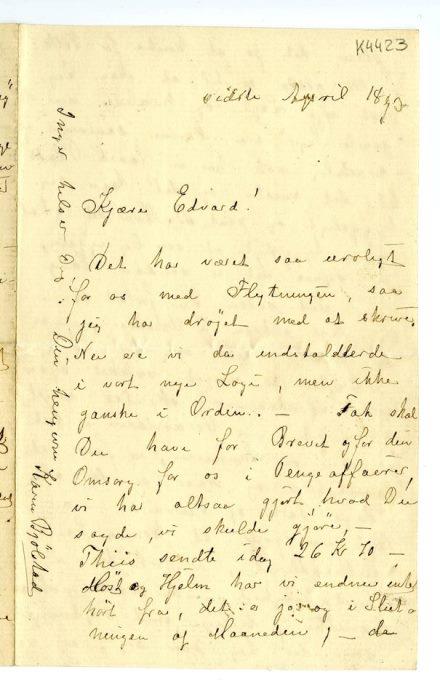 K4423
sidste April 1890
Kjære Edvard!
Det har været saa uroligt
for os med Flytningen, saa
jeg har drøjet med at skrive.
Nu ere vi da indstalderede
i vort nye Logi, men ikke
ganske i Orden. — Tak skal
Du have for Brevet og for din
Omsorg for os i Pengeaffaærer,
vi har altsaa gjort, hvad Du
sagde, vi skulde gjöre, —
Theiis sendte idag 26 Kr 70 —
Høst og Hjelm har vi endnu intet
hört fra, det er jo og i Slut
ningen af Maaneden, — da
Inger hilser Dig!
Din hengivne Karen Bjølstad